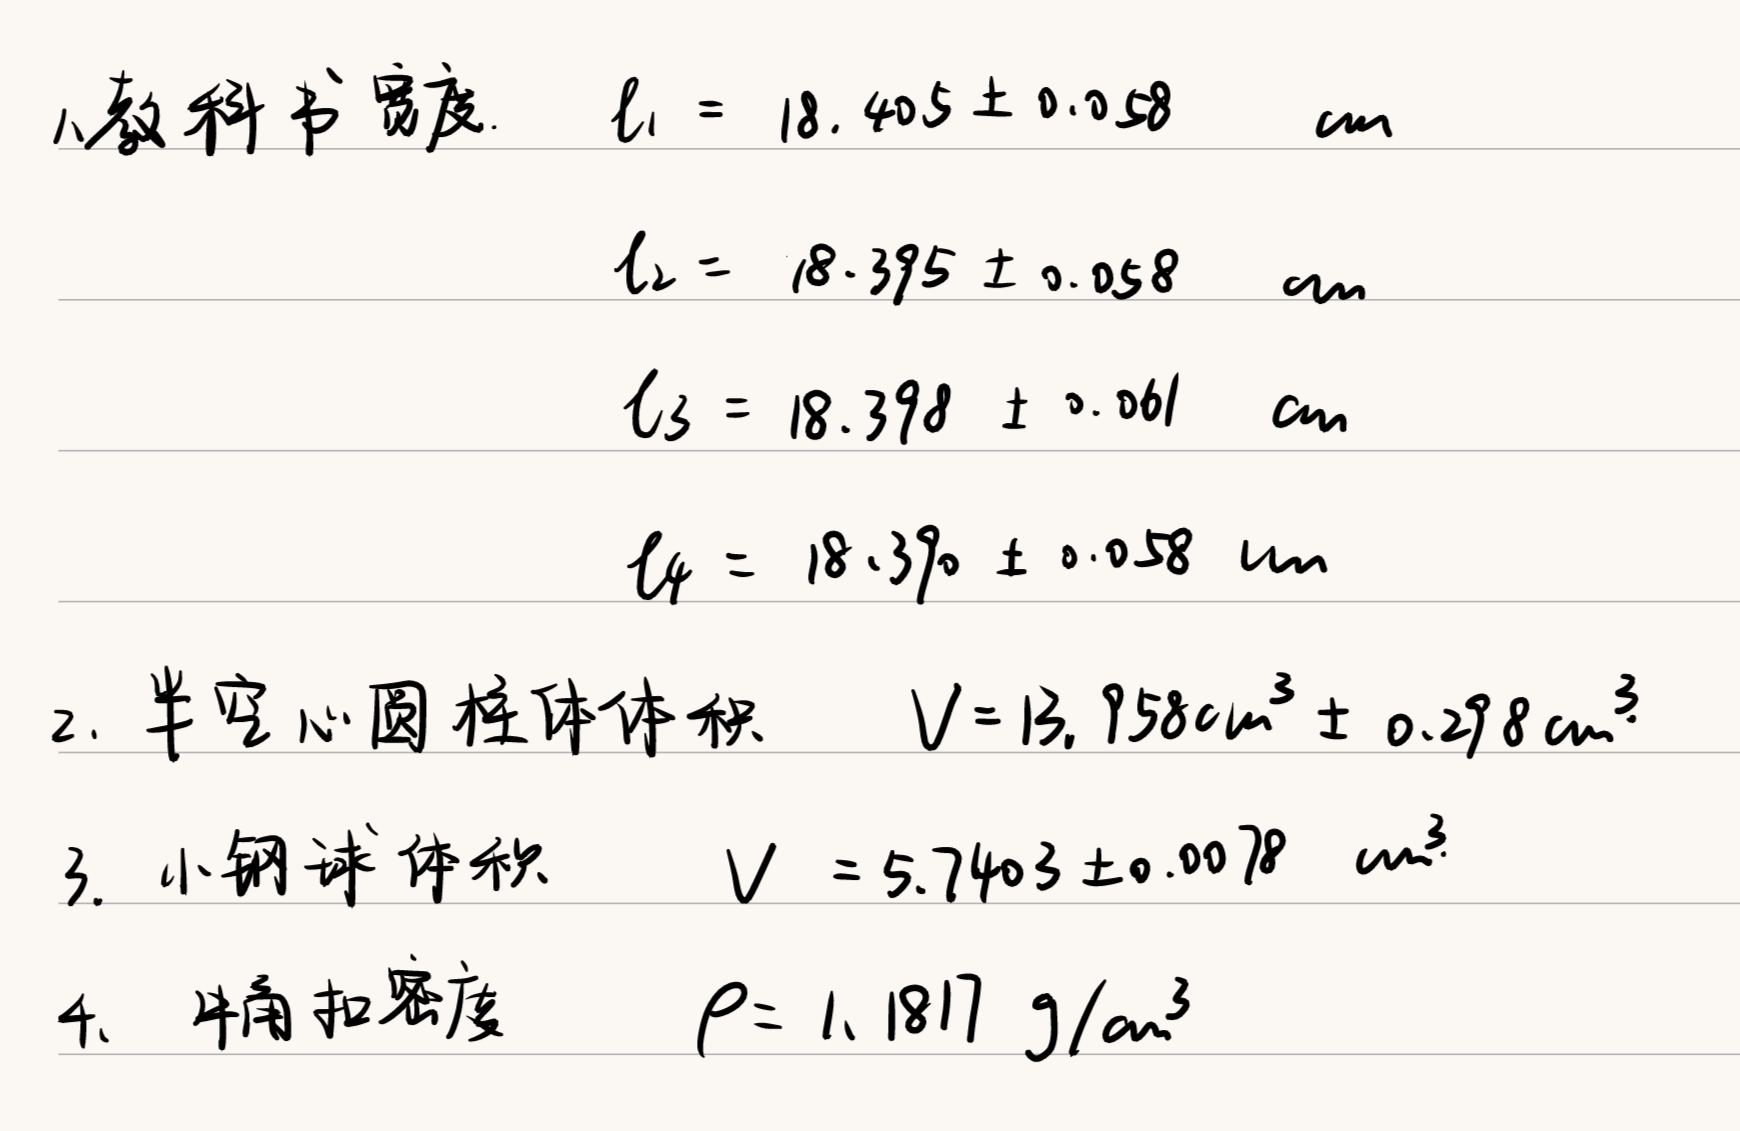 1、教科书宽度. l₁ = 18.405 ± 0.058 cm
l₂ = 18.395 ± 0.058 cm
l₃ = 18.398 ± 0.061 cm
l₄ = 18.390 ± 0.058 cm
2. 半空心圆柱体体积 V = 13.958cm³ ± 0.298cm³.
3. 小钢球体积 V = 5.7403 ± 0.0078 cm³.
4、牛角扣密度 ρ = 1.1817 g/cm³